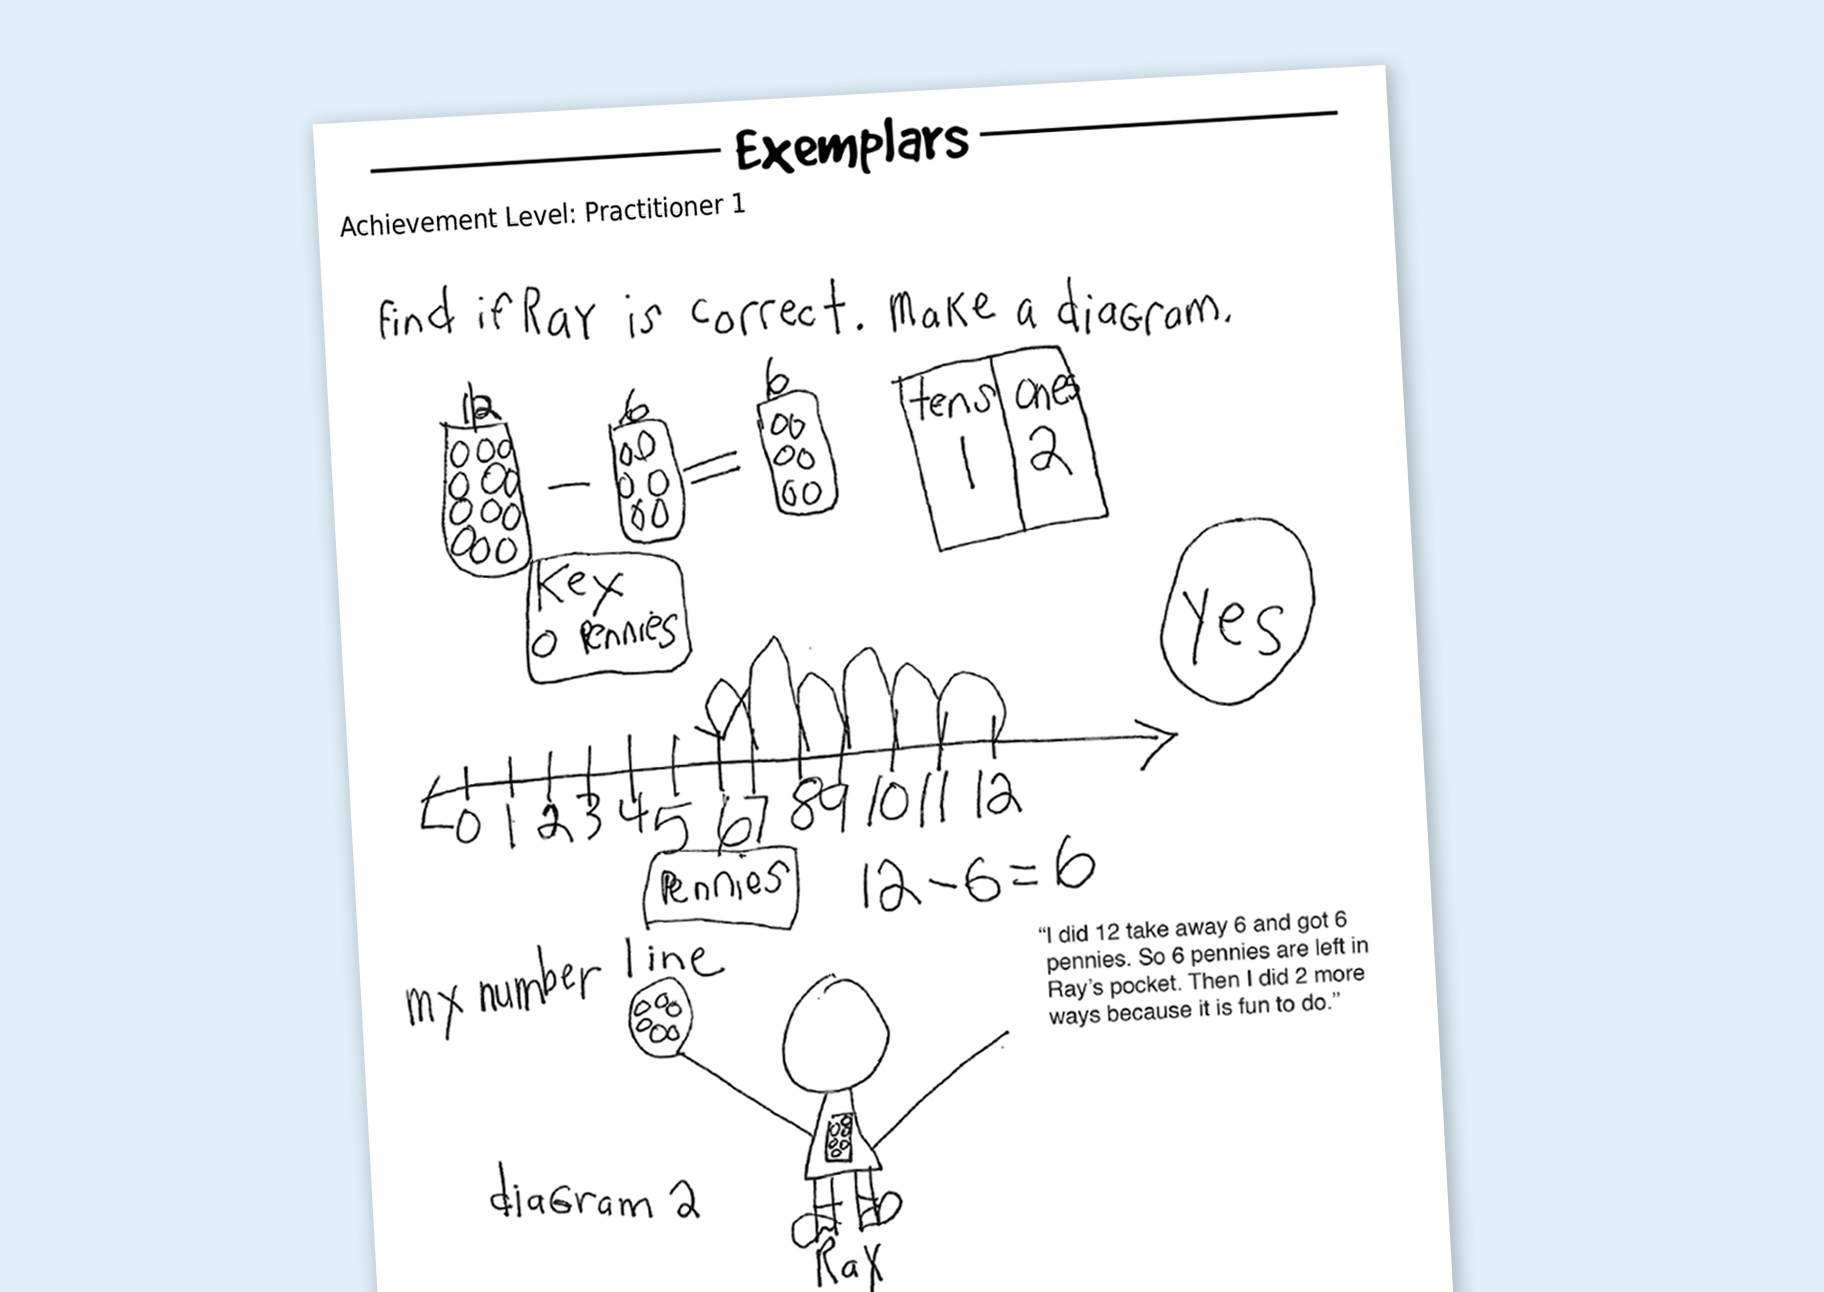 Exemplars
Achievement Level: Practitioner 1
Find if Ray is correct. Make a diagram.
12 6 6
− =
tens ones
1 2
Key
O Pennies
yes
0 1 2 3 4 5 6 7 8 9 10 11 12
Pennies
12-6=6
my number line
“I did 12 take away 6 and got 6
pennies. So 6 pennies are left in
Ray’s pocket. Then I did 2 more
ways because it is fun to do.”
diagram 2
Ray